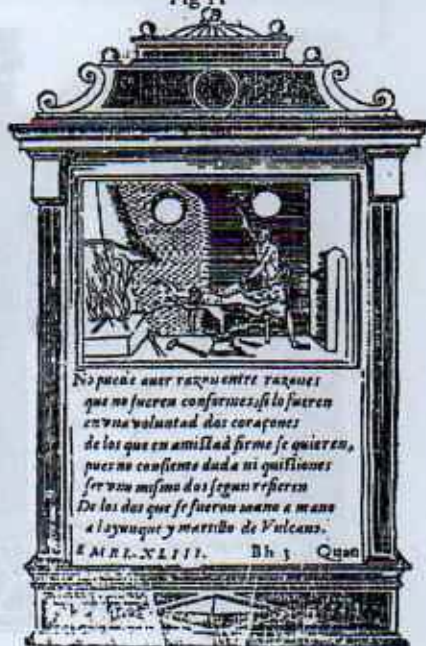 No puede auer razon entre razones
que no fueren conformes, si lo fueren
en vna voluntad dos coraçones
de los que en amistad firme se quieren,
pues no consiente duda ni quistiones
ser vno mismo dos segun refieren
De los dos que se fueron mano a mano
al ayunque y martillo de Vulcano.
EMBL. XLIII. Bb 3 Quan